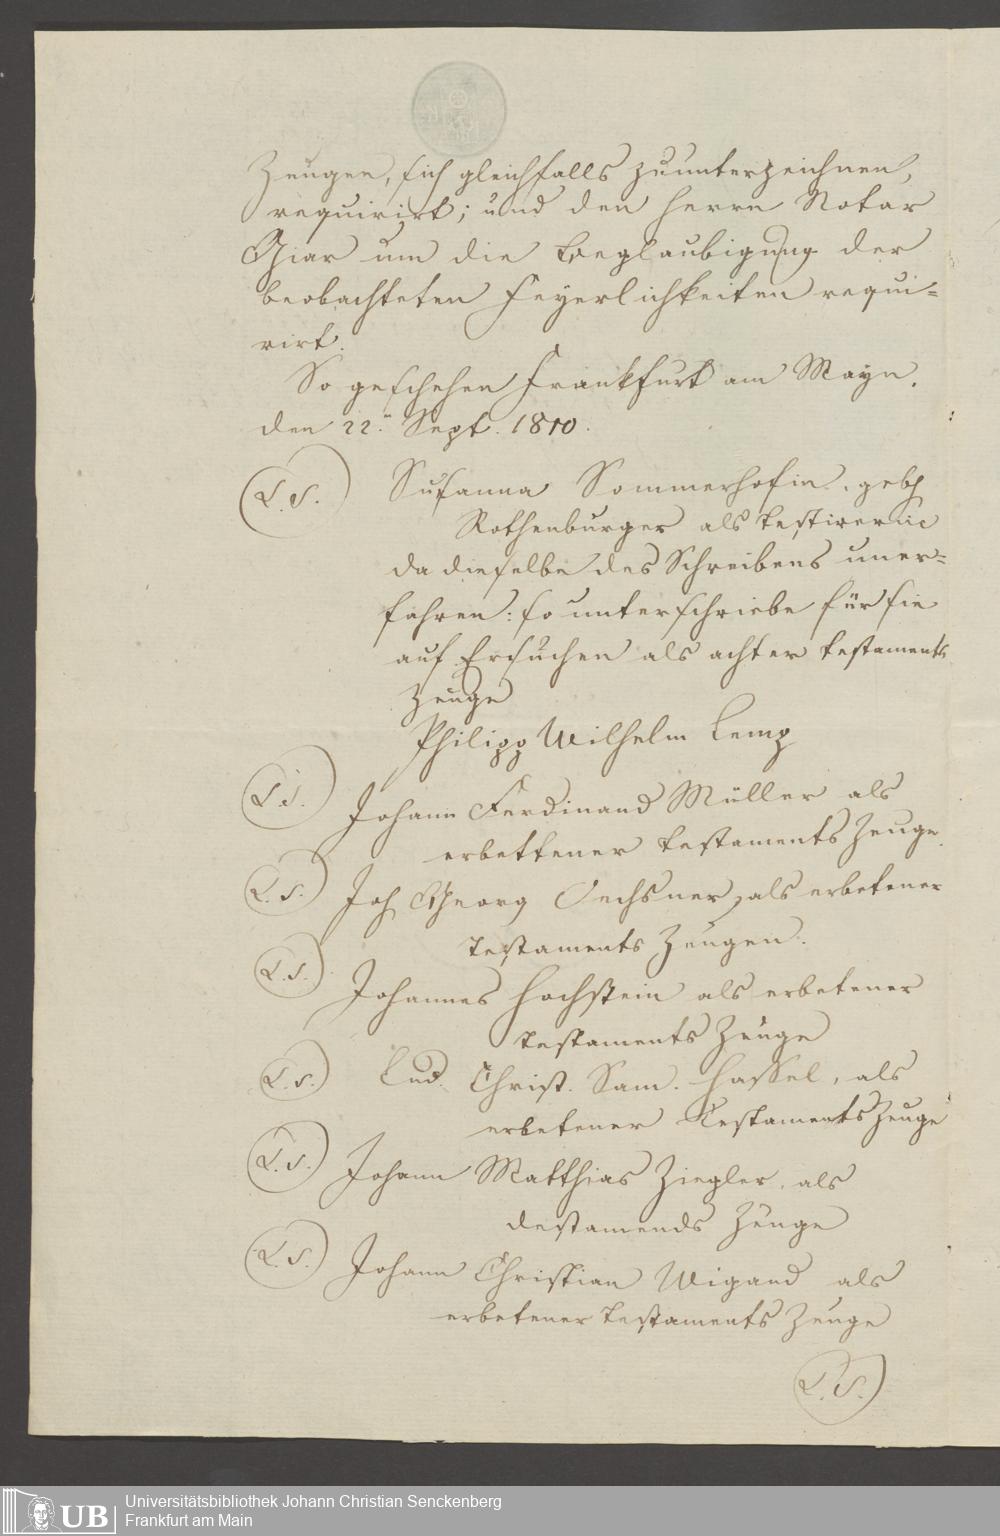 Zeugen, sich gleichfalls zuunterzeichnen,
requirirt; und den Herrn Notar
Giar um die Beglaubigung der
beobachteten Feyerlichkeiten requi=
rirt.
So geschehen Frankfurt am Mayn.
den 22.n Sept. 1810.
L.S. Susanna Sommerhofin. geb.
Rothenburger als Testirerin
da dieselbe des Schreibens uner=
fahren: so unterschriebe für sie
auf Ersuchen als achter Testaments
Zeuge
Philipp Wilhelm Lemp
L.S. Johann Ferdinand Müller als
erbettener Testaments Zeuge.
L.S. Joh Georg Oechsner, als erbetener
Testaments Zeugen.
L.S. Johannes Hochstein als erbetener
Testaments Zeuge
L.S. Lud. Christ. Sam. Hassel, als
erbetener Testaments Zeuge
L.S. Johann Matthias Ziegler, als
destamends Zeuge
L.S. Johann Christian Wigand als
erbetener Testaments Zeuge
L.S.
UB Universitätsbibliothek Johann Christian Senckenberg
Frankfurt am Main